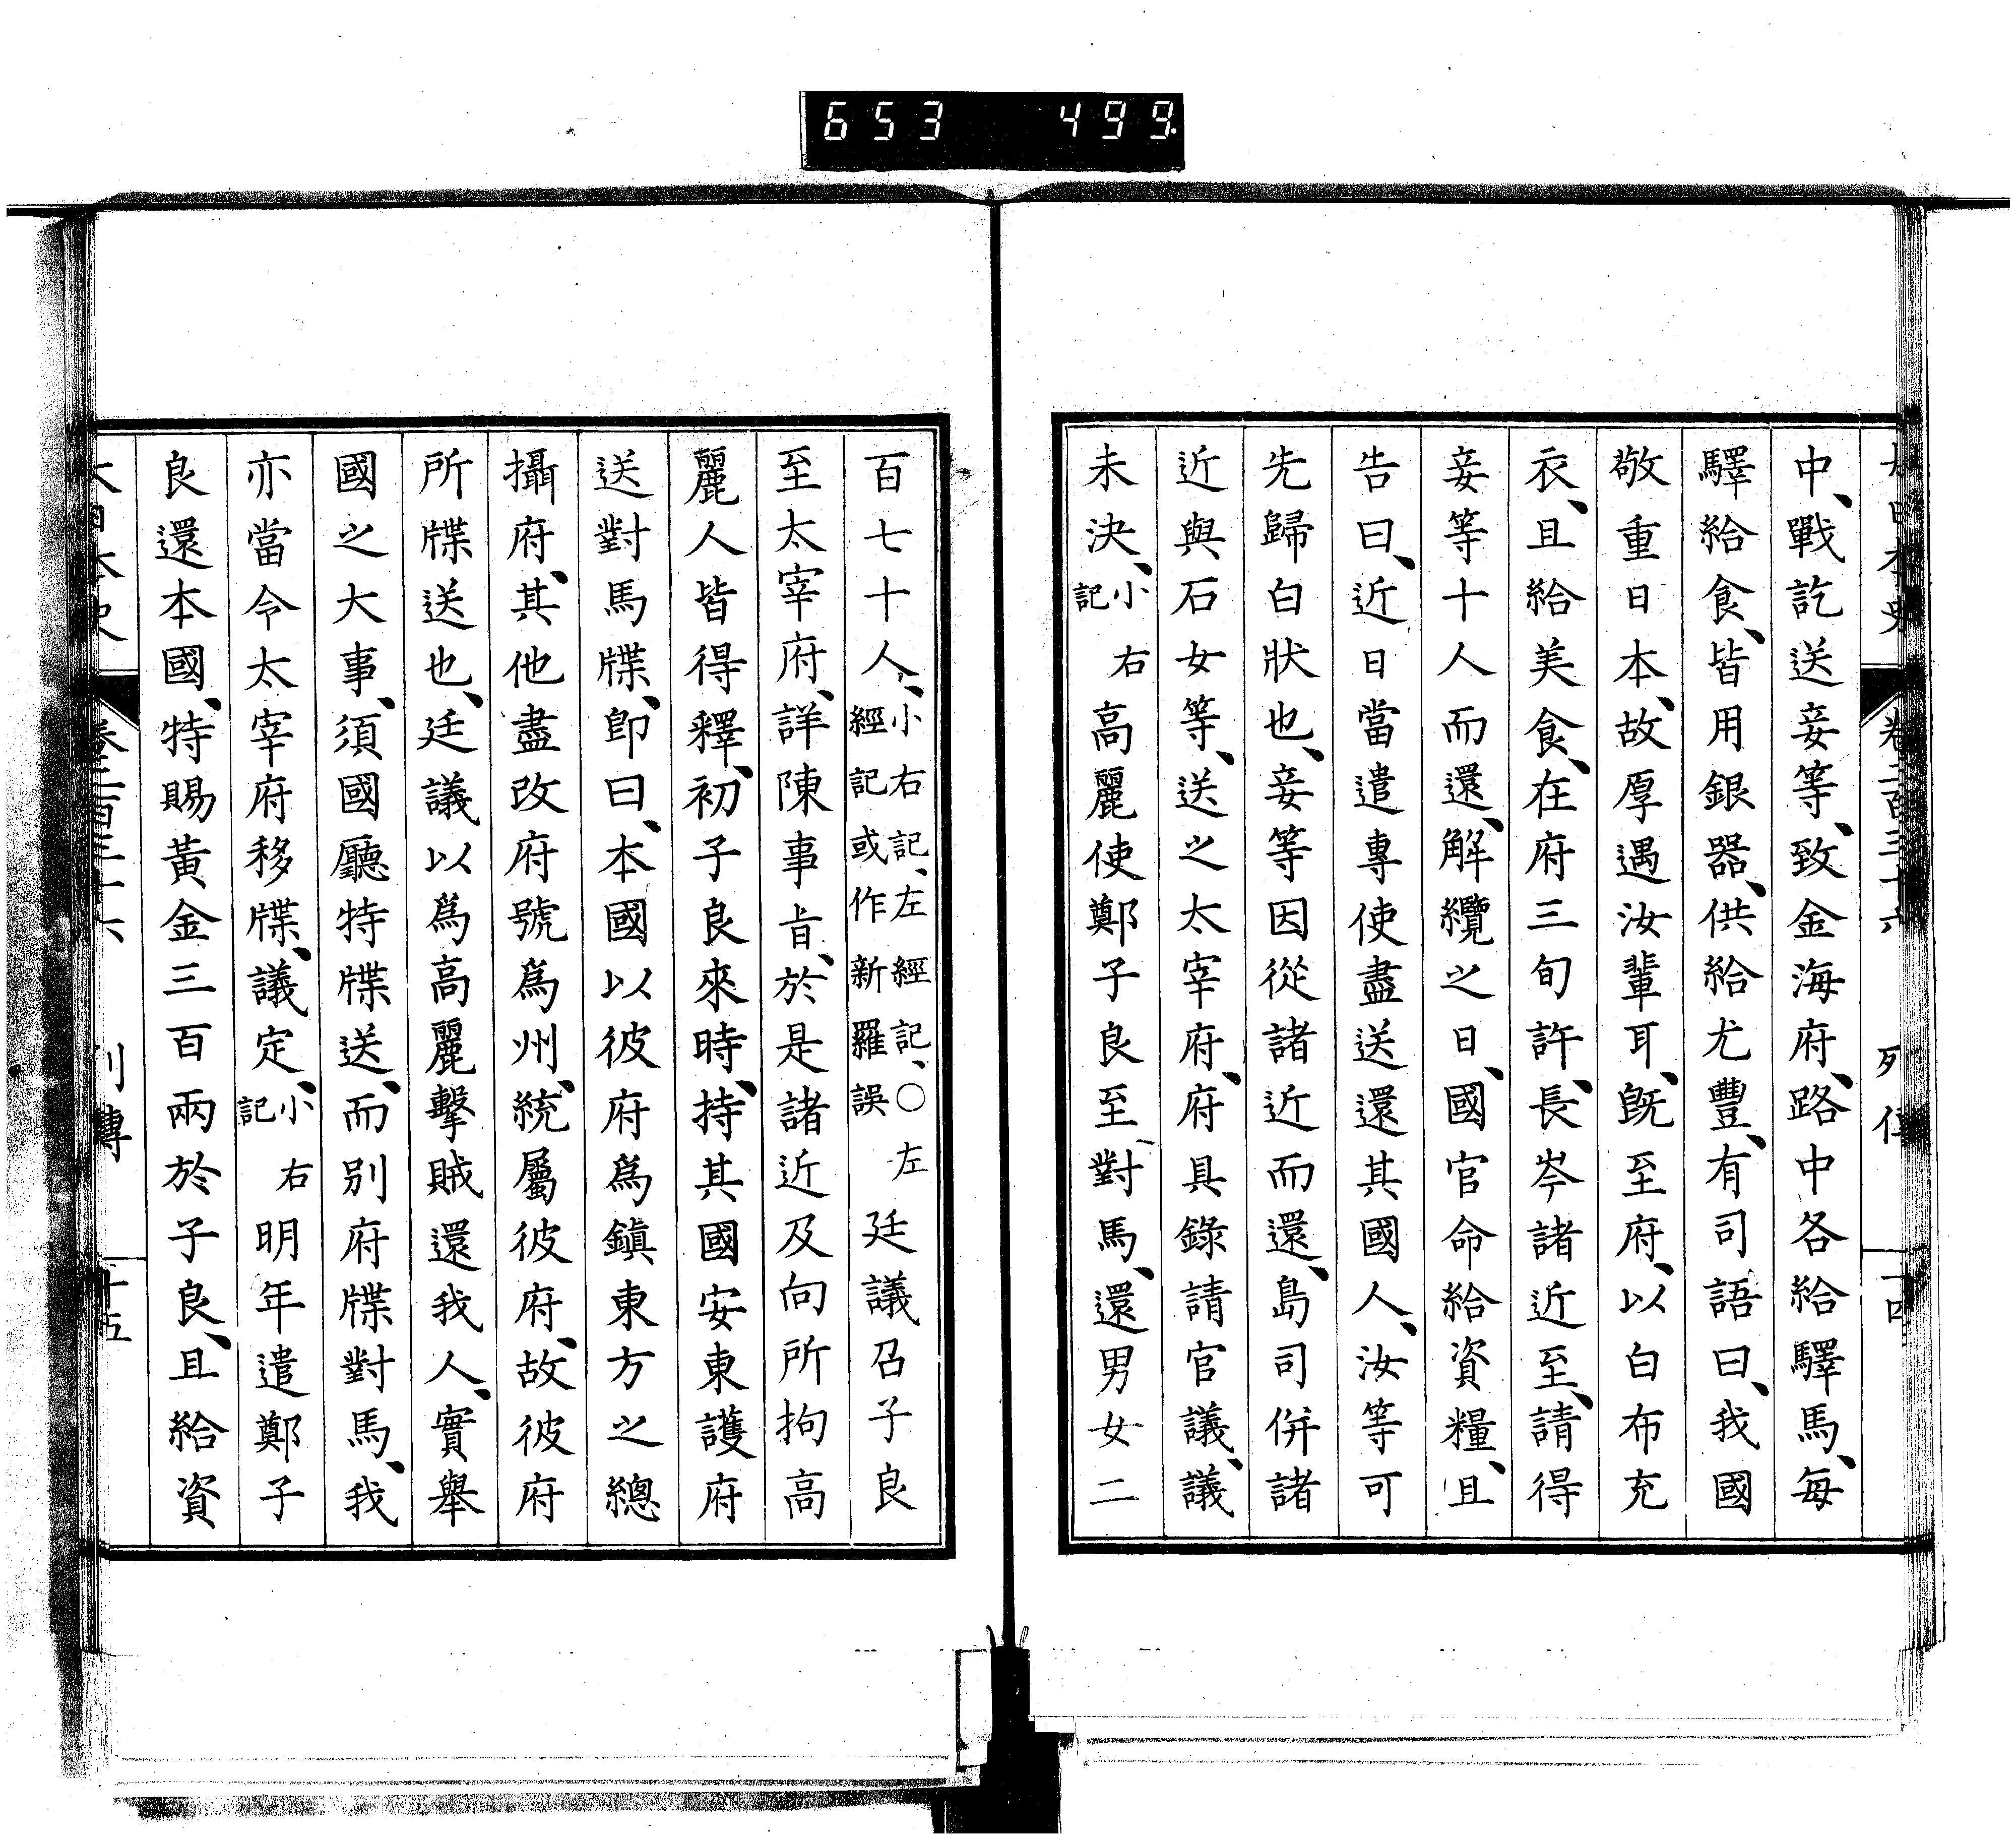 653 499
大日本史 卷二百三十六 列傳 十四
中、戰訖送妾等、致金海府、路中各給驛馬、每
驛給食、皆用銀器、供給尤豐、有司語曰、我國
敬重日本、故厚遇汝輩耳、既至府、以白布充
衣、且給美食、在府三旬許、長岑諸近至、請得
妾等十人而還、解纜之日、國官命給資糧、且
告曰、近日當遣專使盡送還其國人、汝等可
先歸白狀也、妾等因從諸近而還、島司併諸
近與石女等、送之太宰府、府具錄請官議、議
未決、小右記高麗使鄭子良至對馬、還男女二
百七十人、小右記、左經記、○左經記或作新羅誤廷議召子良
至太宰府、詳陳事旨、於是諸近及向所拘高
麗人皆得釋、初子良來時、持其國安東護府
送對馬牒、卽曰、本國以彼府爲鎭東方之總
攝府、其他盡改府號爲州、統屬彼府、故彼府
所牒送也、廷議以爲高麗擊賊還我人、實擧
國之大事、須國廳特牒送、而別府牒對馬、我
亦當令太宰府移牒、議定、小右記明年遣鄭子
良還本國、特賜黃金三百兩於子良、且給資
大日本史 卷二百三十六 列傳 十五